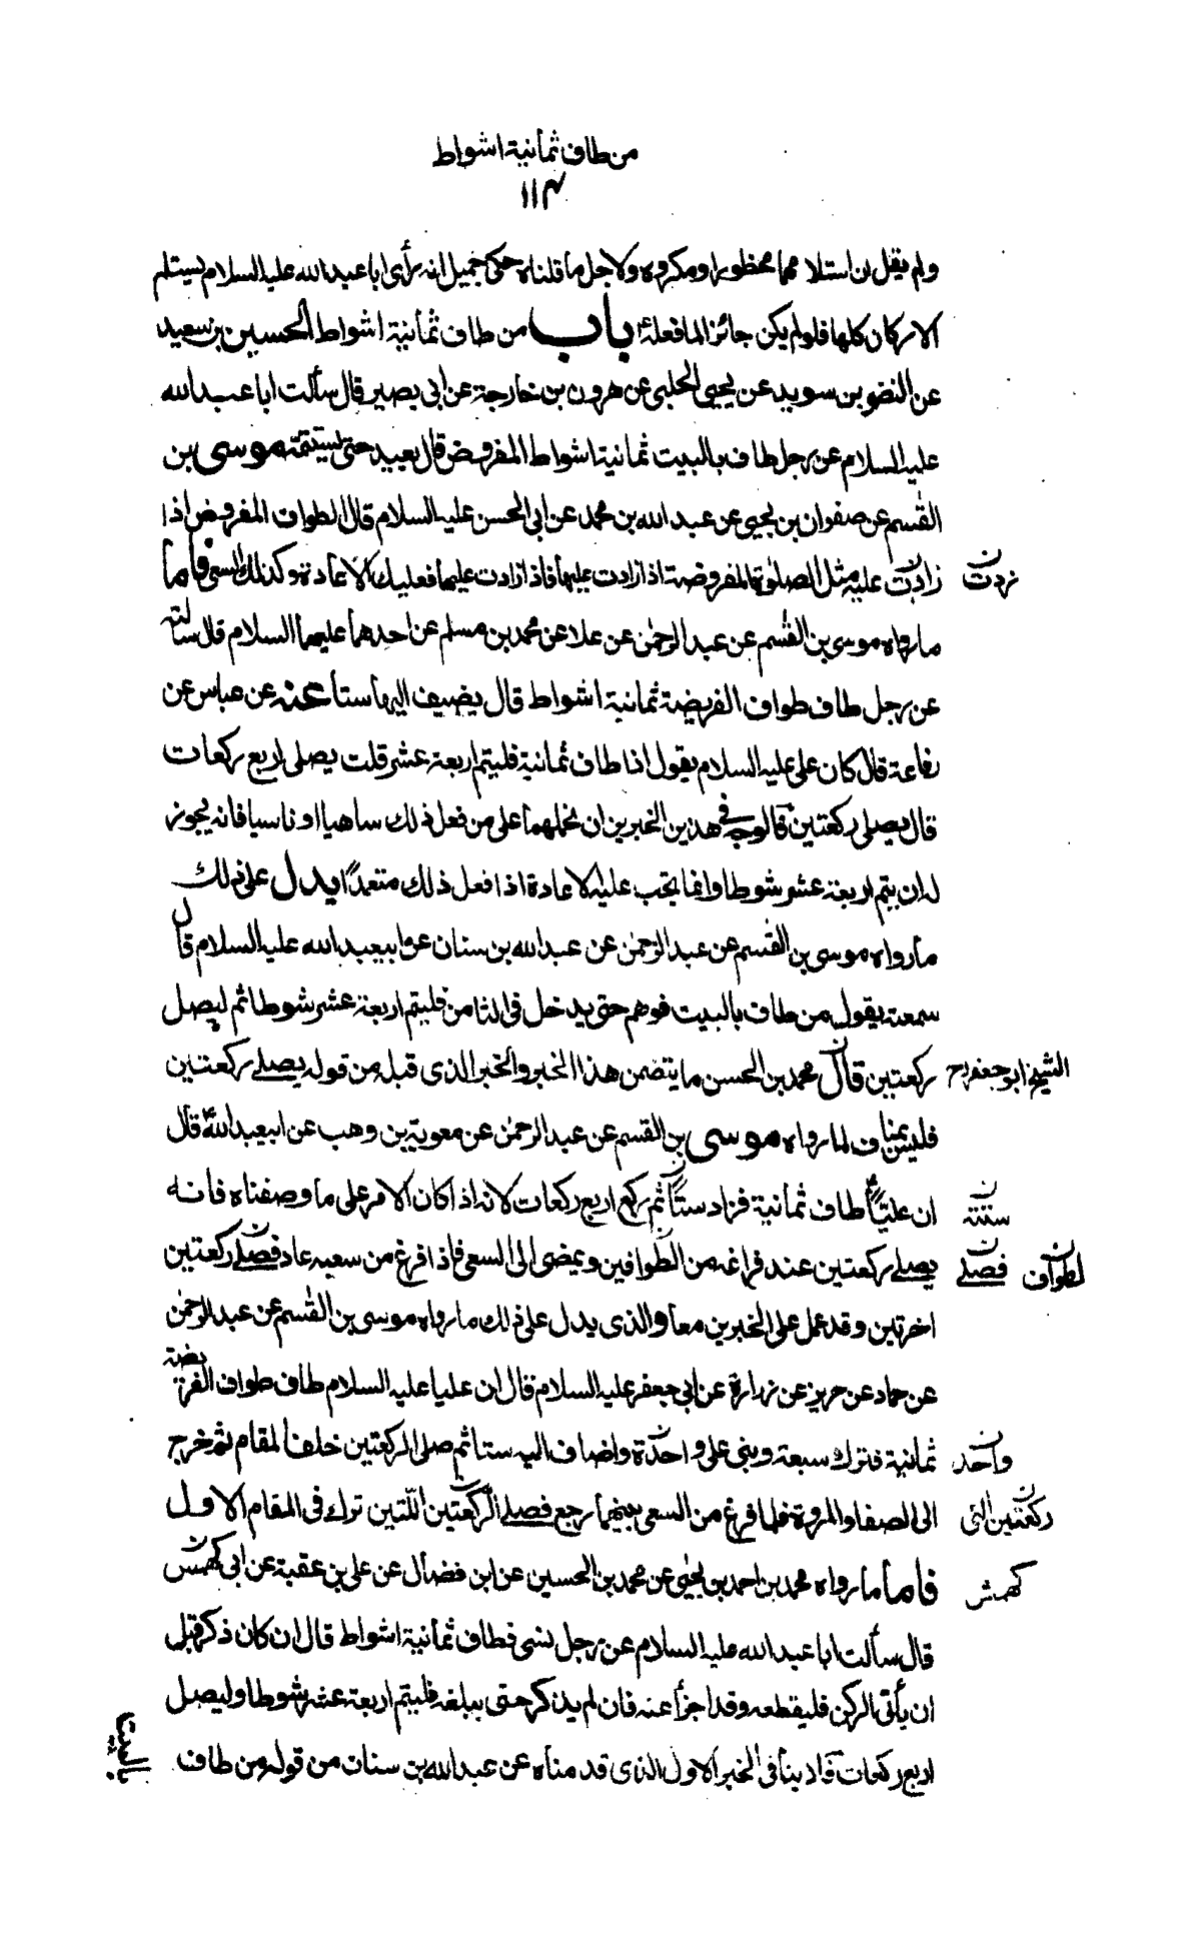 من طاف ثمانية اشواط
١١٣
ولم يقل ان استلامهما محظور او مكروه ولاجل ما قلناه حكى جميل انه رأى ابا عبد الله عليه السلام يستلم
الاركان كلها فلو لم يكن جائز الما فعله باب من طاف ثمانية اشواط الحسين بن سعيد
عن النضر بن سويد عن يحيى الحلبى عن هرون بن خارجة عن ابى بصير قال سألت ابا عبد الله
عليه السلام عن رجل طاف بالبيت ثمانية اشواط المفروض قال يعيد حتى يستتمه موسى بن
القٰسم عن صفوان بن يحيى عن عبد الله بن محمد عن ابى الحسن عليه السلام قال الطواف المفروض اذا
زادت عليه مثل الصلوٰة المفروضة اذا زادت عليها فاذا زادت عليها فعليك الاعادة وكذلك السعى فاما
زدت ن
ما رواه موسى بن القٰسم عن عبد الرحمٰن عن علا عن محمد بن مسلم عن احدهما عليهما السلام قال سألته
عن رجل طاف طواف الفريضة ثمانية اشواط قال يضيف اليها ستا عنه عن عباس عن
رفاعة قال كان على عليه السلام يقول اذا طاف ثمانية فليتم اربعة عشر قلت يصلى اربع ركعات
قال يصلى ركعتين فالوجه فى هذين الخبرين ان نحملهما على من فعل ذلك ساهيا او ناسيا فانه يجوز
له ان يتم اربعة عشر شوطا وانما يجب عليه الاعادة اذا فعل ذلك متعمدًا يدل على ذلك
ما رواه موسى بن القٰسم عن عبد الرحمٰن عن عبد الله بن سنان عن ابيعبد الله عليه السلام قال
سمعته يقول من طاف بالبيت فوهم حتى يدخل فى الثامن فليتم اربعة عشر شوطا ثم ليصل
ركعتين قال محمد بن الحسن ما يتضمن هذا الخبر والخبر الذى قبله من قوله يصلے ركعتين
الشيخ ابو جعفر رح
فليس بمناف لما رواه موسى بن القٰسم عن عبد الرحمٰن عن معوية بن وهب عن ابيعبد الله ع قال
ان عليًا ع طاف ثمانية فزاد ستًا ثم ركع اربع ركعات لانه اذا كان الامر على ما وصفناه فانه
ستة ن
يصلے ركعتين عند فراغه من الطوافين ويمضى الى السعى فاذا فرغ من سعيه عاد فصلے ركعتين
فصلے ن لطواف ن
اخرتين وقد عمل على الخبرين معا والذى يدل على ذلك ما رواه موسى بن القٰسم عن عبد الرحمٰن
عن حماد عن حريز عن زرارة عن ابى جعفر عليه السلام قال ان عليا عليه السلام طاف طواف الفريضة
ثمانية فترك سبعة وبنى على واحدة واضاف اليه ستا ثم صلى الركعتين خلف المقام ثم خرج
واحد ن
الى الصفا والمروة فلما فرغ من السعى بينهما رجع فصلے الركعتين اللتين ترك فى المقام الاول
ركعتين التى ن
فاما ما رواه محمد بن احمد بن يحيٰى عن محمد بن الحسين عن ابن فضال عن على بن عقبة عن ابى كهمس
كهمش
قال سألت ابا عبد الله عليه السلام عن رجل نسى فطاف ثمانية اشواط قال ان كان ذكر قبل
ان يأتى الركن فليقطعه وقد اجزأ عنه فان لم يذكر حتى يبلغه فليتم اربعة عشر شوطا وليصل
اربع ركعات فلا ينافى الخبر الاول الذى قدمناه عن عبد الله بن سنان من قوله من طاف
بالبيت